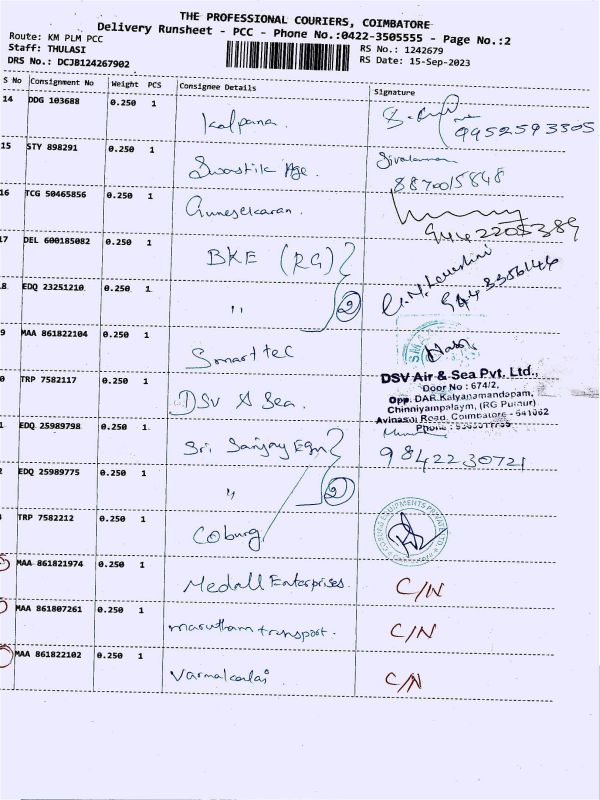 THE PROFESSIONAL COURIERS, COIMBATORE
Delivery Runsheet - PCC - Phone No.:0422-3505555 - Page No.:2
Route: KM PLM PCC
Staff: THULASI
RS No.: 1242679
DRS No.: DCJB124267902
RS Date: 15-Sep-2023
S No Consignment No Weight PCS Consignee Details Signature
14 DDG 103688 0.250 1 Kalpana.
9952593305
15 STY 898291 0.250 1 Swastik Age. Sivalaman
8870015848
16 TCG 50465856 0.250 1 Gunesekaran.
17 DEL 600185082 0.250 1 BKE (RG)
8 EDQ 23251210 0.250 1 " 2
9 MAA 861822104 0.250 1 Smart tec
0 TRP 7582117 0.250 1 DSV A Sea.
DSV Air & Sea Pvt. Ltd.,
Door No : 674/2,
Opp. DAR Kalyanamandapam,
Chinniyampalaym, (RG Pudur)
Avinasoi Road, Coimbatore - 641062
Phone :
1 EDQ 25989798 0.250 1 Sri Sanjay Egn
9842230721
2 EDQ 25989775 0.250 1 " 2
TRP 7582212 0.250 1 Coburg
MAA 861821974 0.250 1 Medall Enterprises. C/N
MAA 861807261 0.250 1 marutham transport. C/N
MAA 861822102 0.250 1 Varmakalai C/N